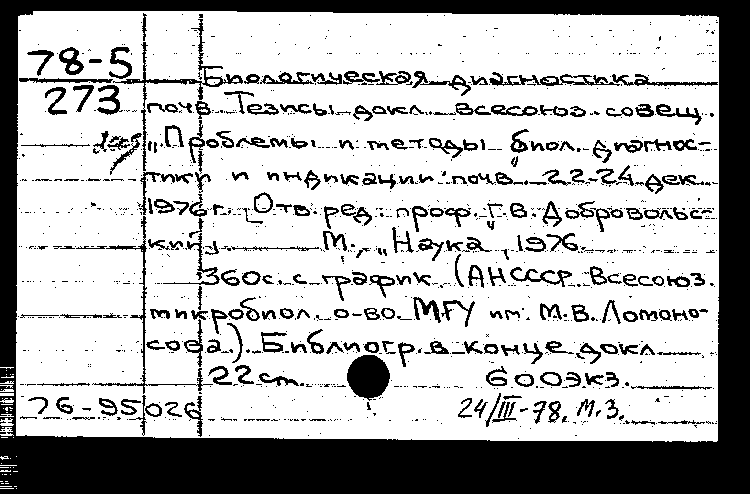 78-5
Биологическая диагностика
273 почв. Тезисы докл. всесоюз. совещ.
„Проблемы и методы биол. диагнос-
тики и индикации почв" 22-24 дек.
1976 г. [Отв. ред. проф. Г.В. Добровольс-
кий] М., „Наука", 1976.
360с. с график. (АНСССР Всесоюз.
микробиол. о-во. МГУ им. М.В. Ломоно-
сова.) Библиогр. в конце докл.
22 см. 600экз.
76-95026 24/III-78. М.З.